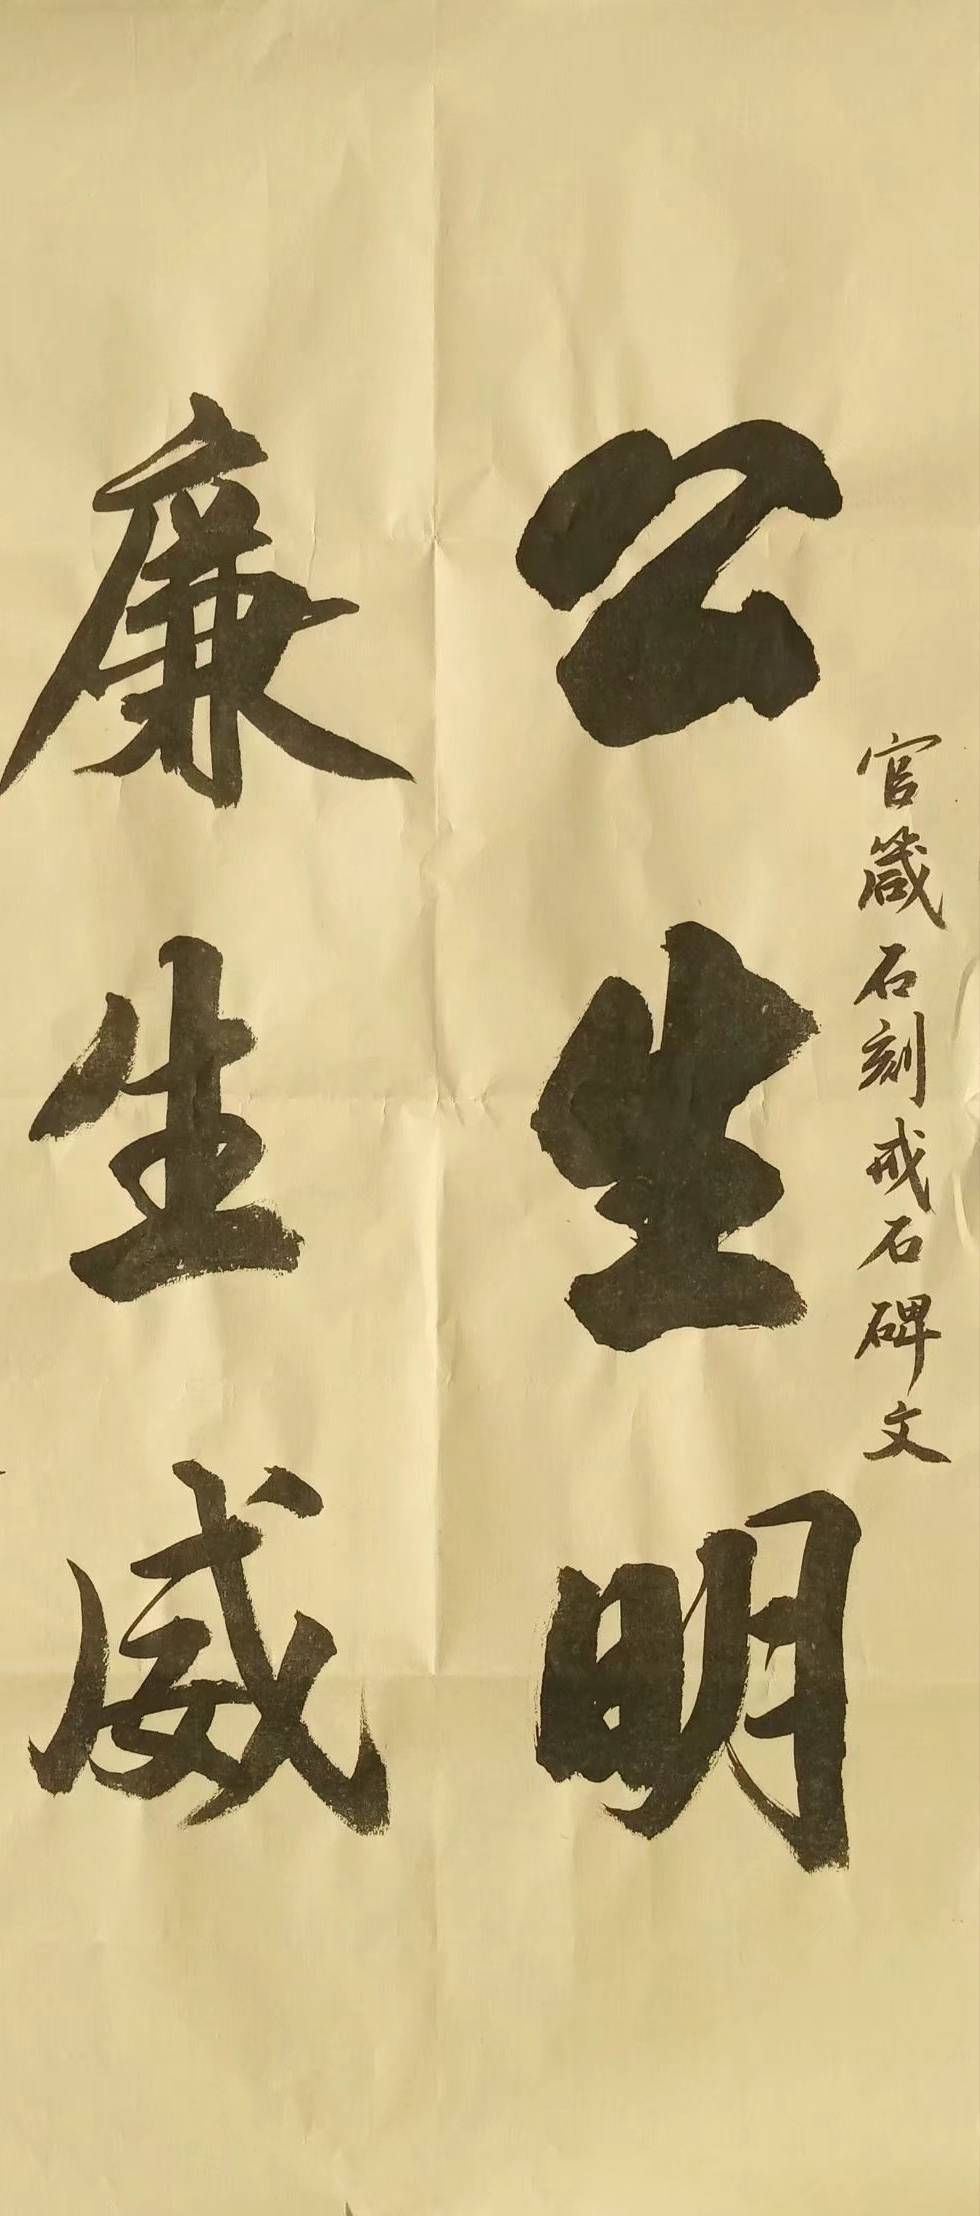 官箴石刻戒石碑文
公生明
廉生威